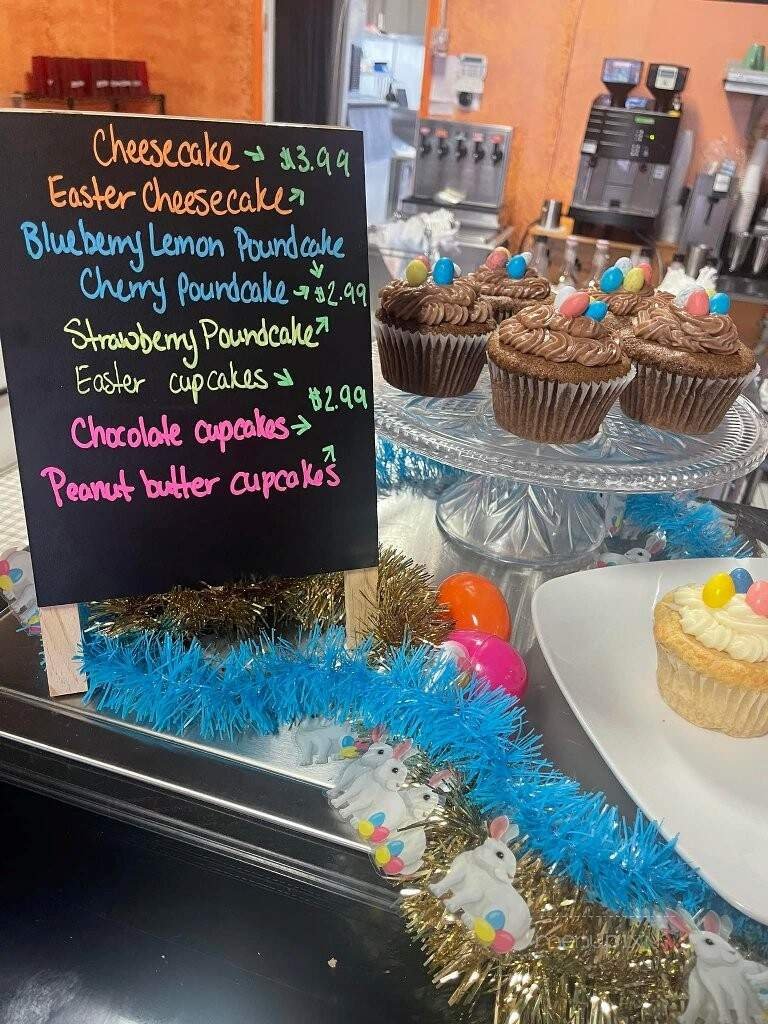 Cheesecake → $3.99
Easter Cheesecake ↗
Blueberry Lemon Poundcake
Cherry Poundcake → $2.99
Strawberry Poundcake ↗
Easter cupcakes ↘
$2.99
Chocolate cupcakes →
Peanut butter cupcakes ↗
menupix